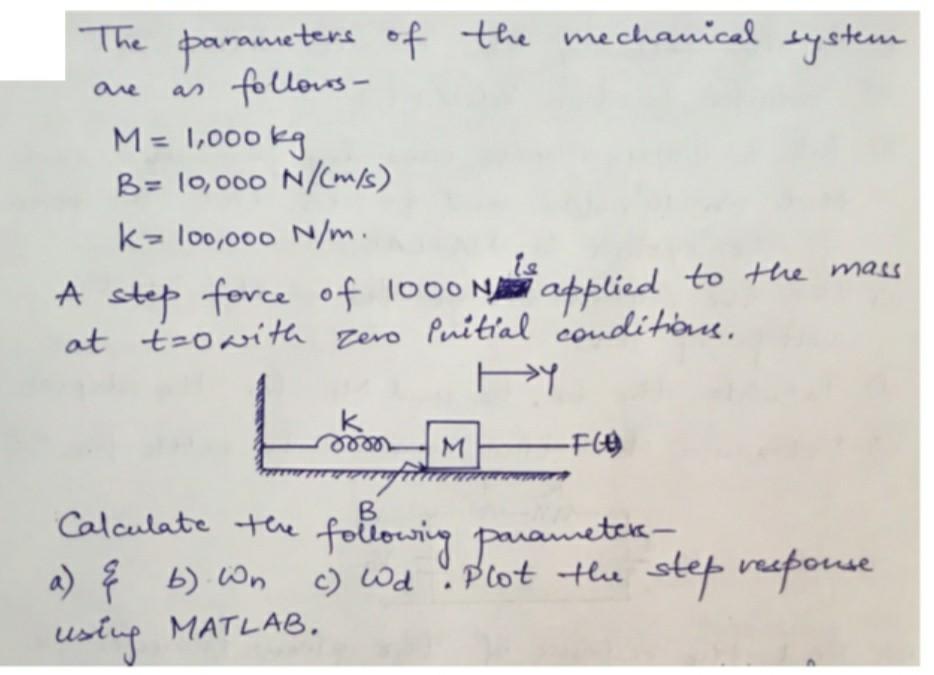 The parameters of the mechanical system
are as follows-
M = 1,000 kg
B = 10,000 N/(m/s)
K = 100,000 N/m.
A step force of 1000 N is applied to the mass
at t=0 with zero initial conditions.
Y
K
M
F(t)
B
Calculate the following parameters-
a) ξ b) ωn c) ωd . Plot the step response
using MATLAB.